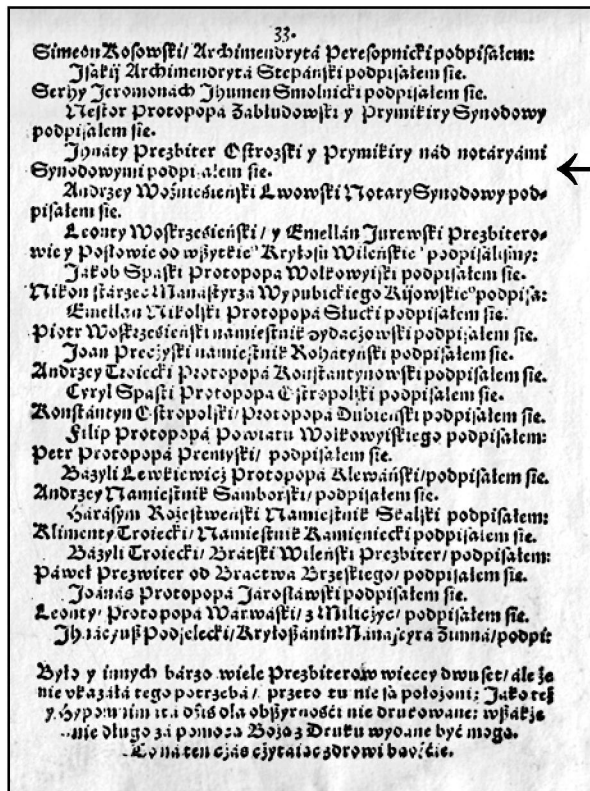 33.
Simeon Kosowski/ Archimendrytá Peresopnicki podpisałem:
Jsákij Archimendrytá Stepáński podpisałem sie.
Serhy Jeromonách Jhumen Smolnicki podpisałem sie.
Nestor Protopopá Zabłudowski y Prymikiry Synodowy
podpisałem sie.
Jhnáty Prezbiter Ostrozski y Prymikiry nád notaryámi
Synodowymi podpisałem sie.
Andrzey Wozniesieński Lwowski Notary Synodowy pod-
pisałem sie.
Leonty Woskrzesieński/ y Emellan Jurewski Prezbitero-
wie y Posłowie od wszytkieo Kryłosu Wileńskieo podpisálismy:
Jakob Spaski Protopopá Wołkowyiski podpisałem sie.
Nikon stárzec Manástyrzá Wypubickiego Kijowskieo podpisa:
Emellan Nikolski Protopopá Słucki podpisałem sie.
Piotr Woskrzesieński namiestnik Zydaczowski podpisałem sie.
Joan Preczyski namiestnik Roháтyński podpisałem sie.
Andrzey Troiecki Protopopá Konstántynowski podpisałem sie.
Cyryl Spaski Protopopá Ostropolski podpisałem sie.
Konstántyn Ostropolski/ Protopopá Dubieński podpisałem sie.
Filip Protopopá Powiatu Wołkowyiskiego podpisałem:
Petr Protopopá Premyski/ podpisałem sie.
Bázyli Lewkiewicz Protopopá Klewáński/ podpisałem sie.
Andrzey Namiestnik Samborski/ podpisałem sie.
Hárásym Rożestweński Namiestnik Skalski podpisałem:
Klimenty Troiecki/ Namiestnik Kámieniecki podpisałem sie.
Bázyli Troiecki/ Brátski Wileński Prezbiter/ podpisałem:
Páweł Prezwiter od Bráctwa Brzeskiego/ podpisałem sie.
Joánás Protopopá Járosławski podpisałem sie.
Leonty/ Protopopá Wárwáski/ z Miliczyc/ podpisałem sie.
Podjelecki/ Kryłoszánin podpis:
Było y innych bárzo wiele Prezbiterow wiecey dwuset/ ále że
nie vkazáłá tego potrzebá/ przeto tu nie są położoni: Jáko też
y dziś dla obszyrności nie drukowáne: wszákże
nie długo zá pomocą Bożą z Druku wydáne być mogą.
Co ná ten czás czytáiąc zdrowi bądźcie.